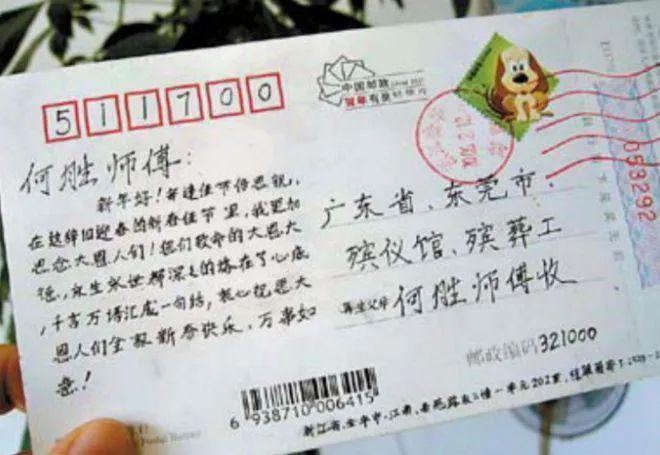 511700
中国邮政
贺年有奖
何胜师傅:
新年好!每逢佳节倍思亲,
在这辞旧迎春的新春佳节里,我更加
思念大恩人们!您们救命的大恩大
德,永生永世都深深的烙在了心底
,千言万语汇成一句话,衷心祝恩大
恩人们全家新春快乐、万事如
意!
广东省、东莞市、
殡仪馆、殡葬工
再生父母 何胜师傅收
邮政编码 321000
053292
6 938710 006415
浙江省,金华市,江南,